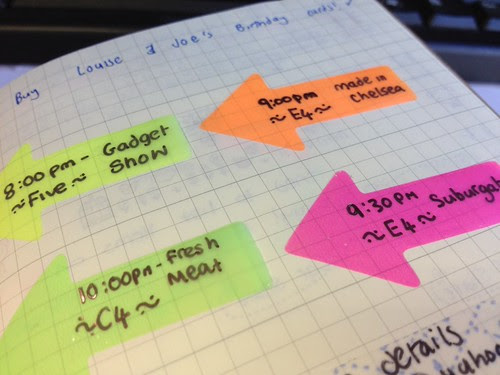 Buy Louise & Joe's Birthday cards! ✓
9:00pm made in
~E4~ Chelsea
8:00pm - Gadget
~Five~ Show
9:30pm Suburgat
~E4~
10:00pm - Fresh
~C4~ Meat
details